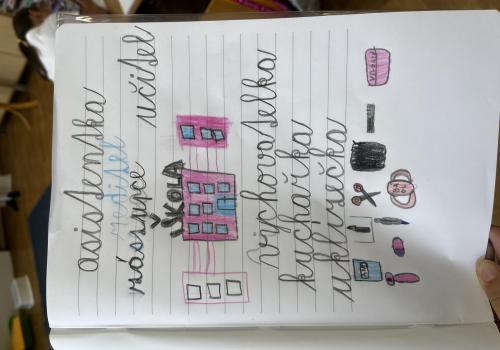 asistentka
ředitel
zástupce učitel
ŠKOLA
vychovatelka
kuchařka
uklízečka